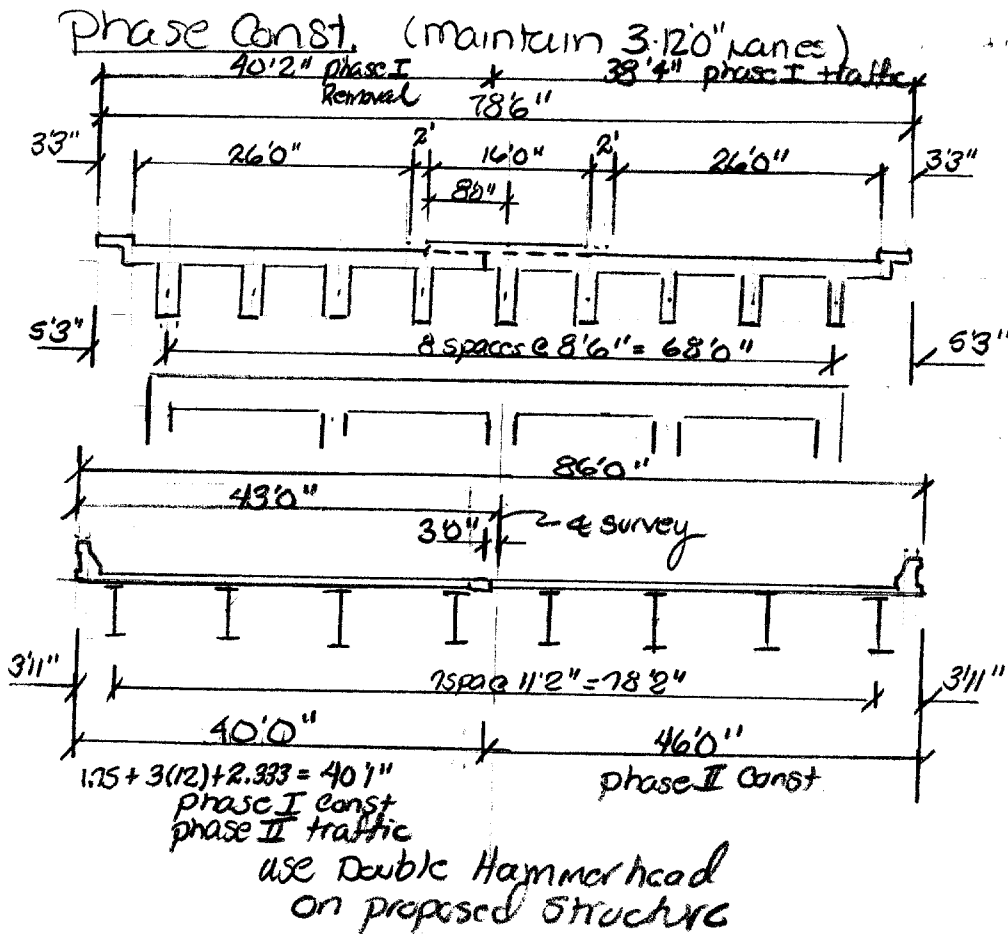 Phase Const. (maintain 3-12'0" Lanes)
40'2" phase I Removal
38'4" phase I traffic
78'6"
3'3"
26'0"
2'
16'0"
2'
26'0"
3'3"
8'0"
5'3"
8 spaces @ 8'6" = 68'0"
5'3"
86'0"
43'0"
3'0"
℄ survey
3'11"
7spa @ 11'2" = 78'2"
3'11"
40'0"
46'0"
1.75 + 3(12) + 2.333 = 40'1"
phase II Const
phase I const
phase II traffic
use Double Hammerhead
on proposed structure